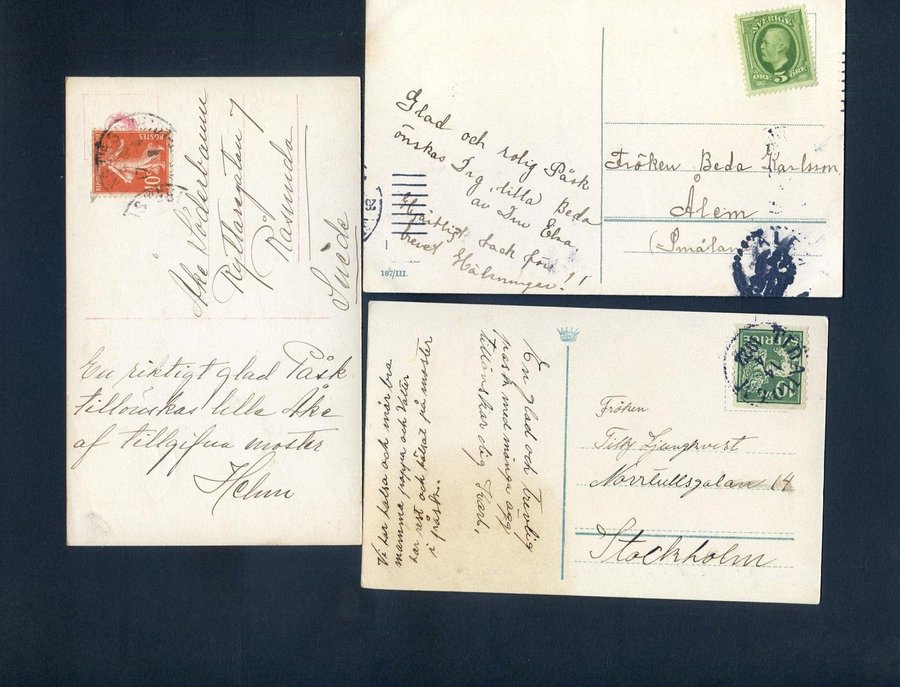 POSTES
10
Åke Söderbaum
Ryttaregatan 7
Råsunda
Suède
En riktigt glad Påsk
tillönskas lille Åke
af tillgifna moster
Helm
SVERIGE
ÖRE 5 ÖRE
Glad och rolig Påsk
önskas Dig, lilla Beda
av Din Elsa.
Hjärtligt tack för
brevet Hälsningar!!
187/III.
Fröken Beda Karlsson
Ålem
(Småland
SVERIGE
10
En glad och trevlig
påsk med många ägg
tillönskar dig
Vi har hälsa och mår bra
mamma pappa och Valter
har rest och hälsat på moster
i påsk.
Fröken
Tilly Ljungkvist
Norrtullsgatan 14
Stockholm